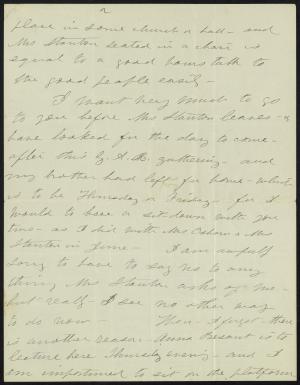 2
place in some church or hall - and
Mrs Stanton seated in a chair is
equal to a good hours talk to
the good people easily -
I want very much to go
to you before Mrs Stanton leaves - &
have looked for the day to come -
after this G. A. R. gathering - and
my brother had left for home - which
is to be Thursday or Friday - for I
would to have a sit down with you
two - as I did with Mrs Osborne & Mrs
Stanton in June - I am awfully
sorry to have to say no to any
thing Mrs Stanton asks of me -
but really - I see no other way
to do now - Then - I forgot - there
is another reason - Anna Besant is to
lecture here Thursday evening - and I
am importuned to sit on the platform